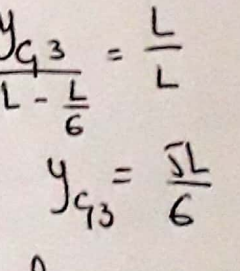 y_{G3} / (L - L/6) = L/L
y_{G3} = 5L/6